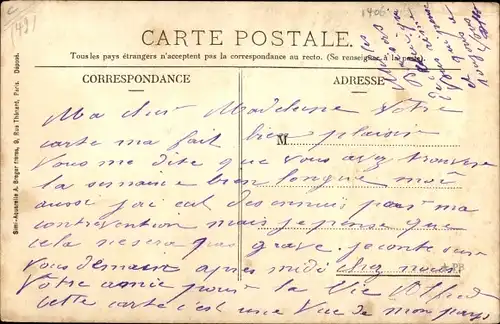 CARTE POSTALE.
Tous les pays étrangers n'acceptent pas la correspondance au recto. (Se renseigner à la poste).
CORRESPONDANCE
ADRESSE
M
Ma cher Madeleine Votre
carte ma fait bien plaisir
Vous me dite que vous avez trouver
la semaine bien longue moi
aussi j'ai eut des ennuis pour ma
contrevention mais je pense que
cela ne sera pas grave. je conte sur
vous demain apres midi chez nous
Votre amie pour la Vie Alfred
cette carte c'est une Vue de mon pays
Simi-Aquarelle A. Breger frères, 9, Rue Thénard, Paris. Déposé.